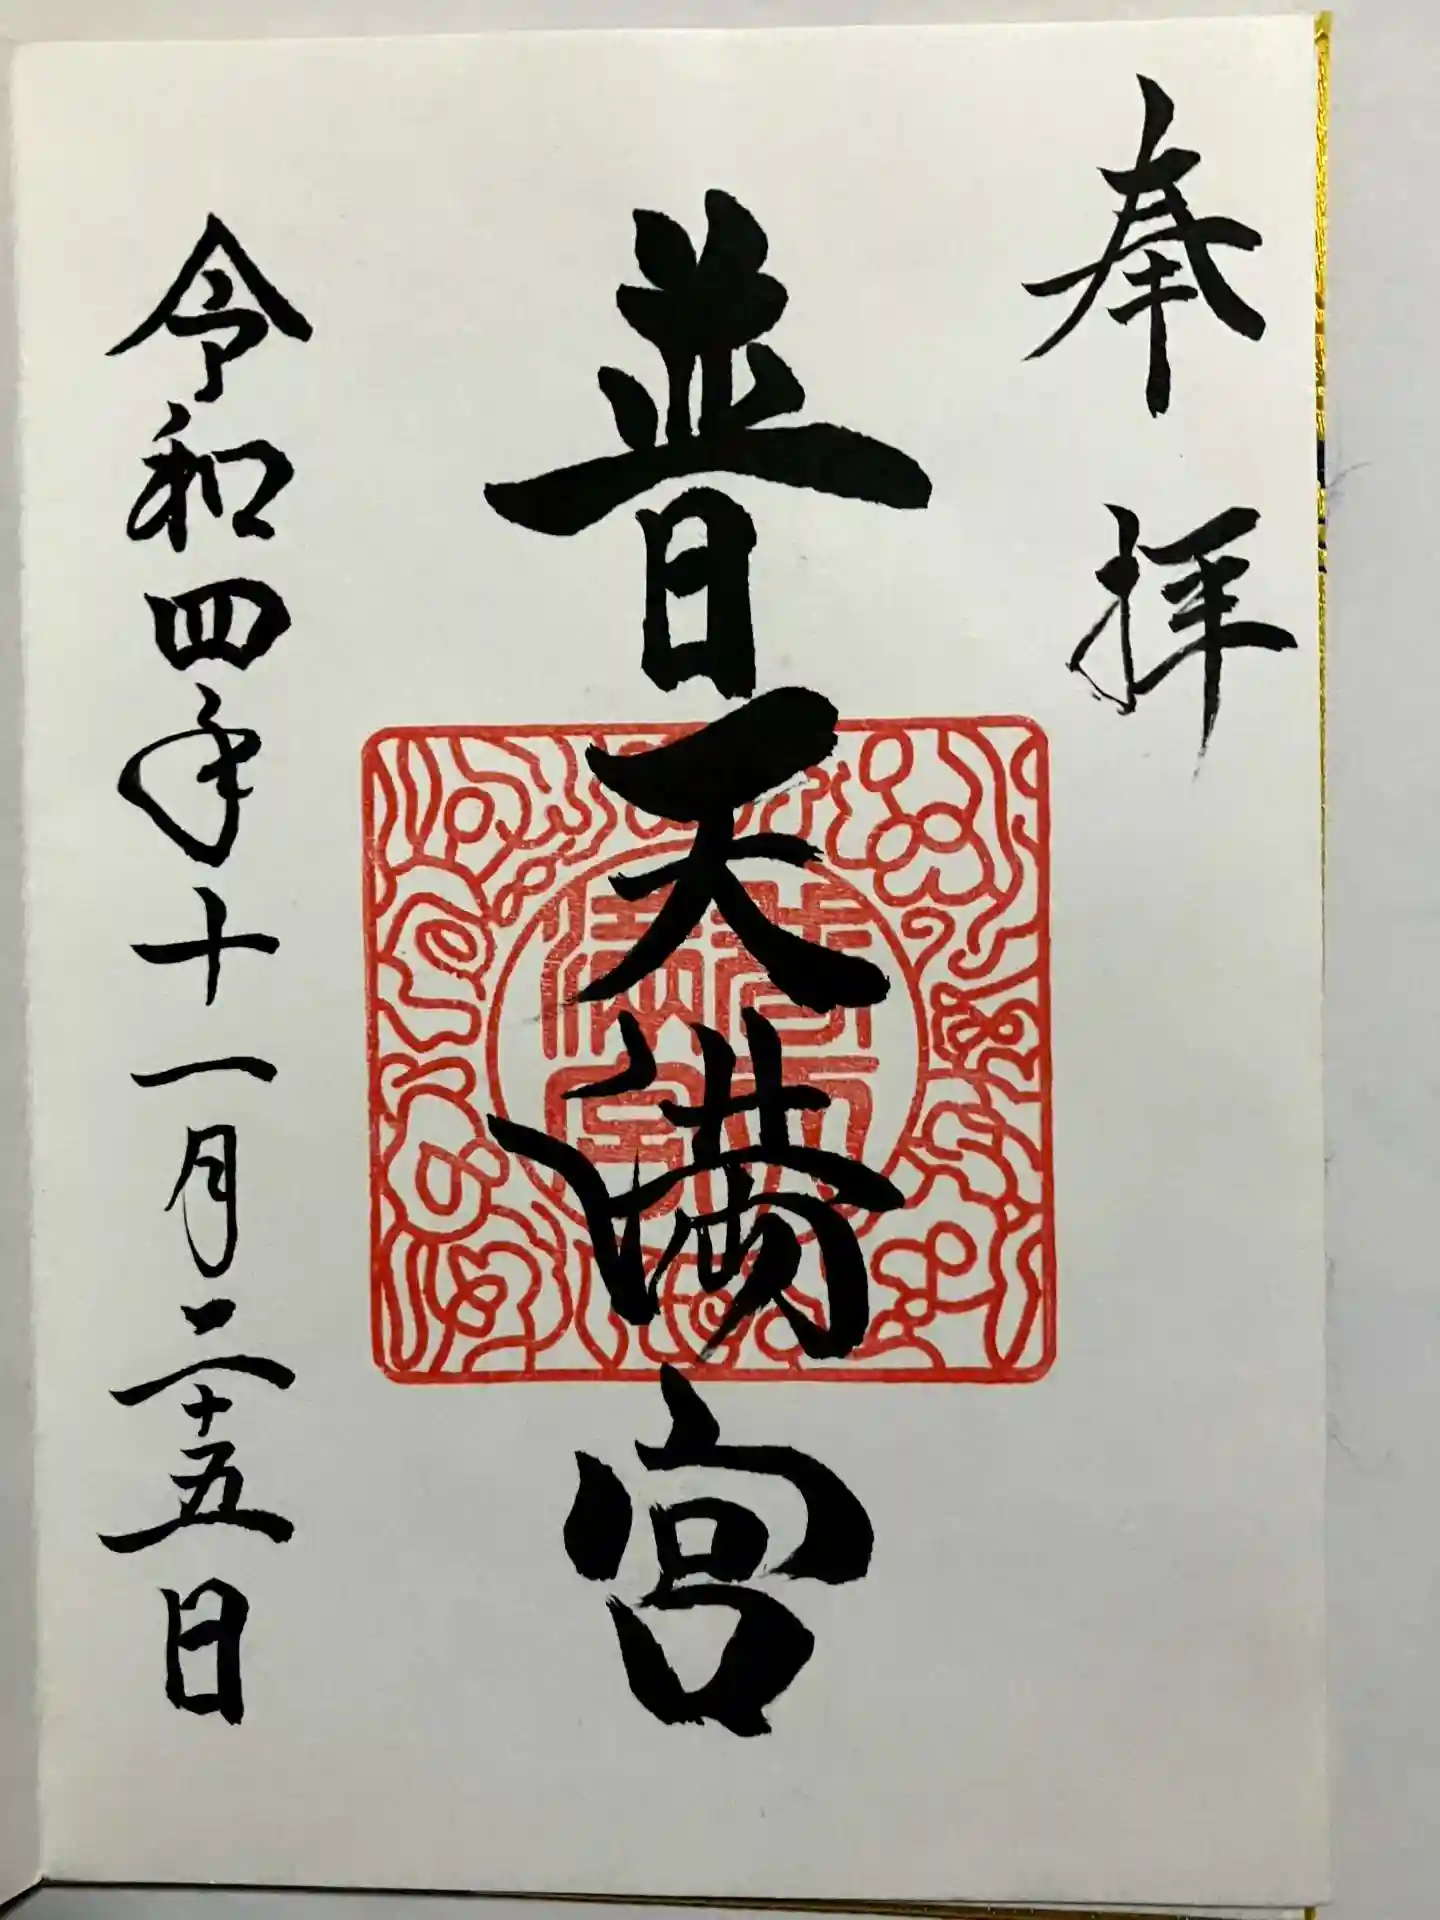 奉拝
普天満宮
普天満宮
令和四年十一月二十五日